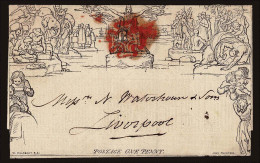 Messrs N Waterhouse & Sons
Liverpool
POSTAGE ONE PENNY.